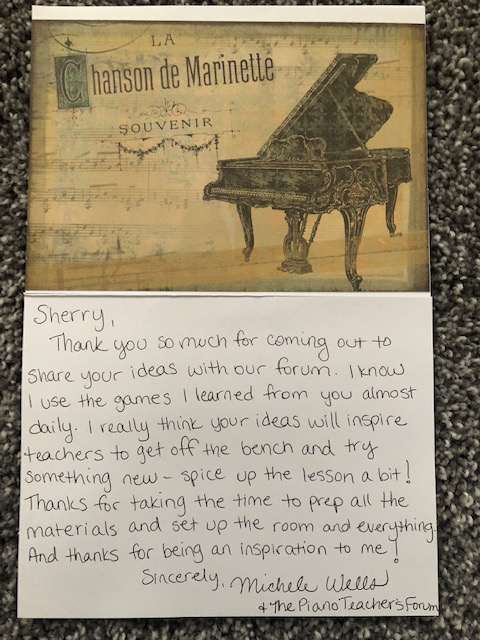 LA
Chanson de Marinette
SOUVENIR
Sherry,
Thank you so much for coming out to
share your ideas with our forum. I know
I use the games I learned from you almost
daily. I really think your ideas will inspire
teachers to get off the bench and try
something new - spice up the lesson a bit!
Thanks for taking the time to prep all the
materials and set up the room and everything.
And thanks for being an inspiration to me!
Sincerely, Michele Wells
& The Piano Teacher's Forum